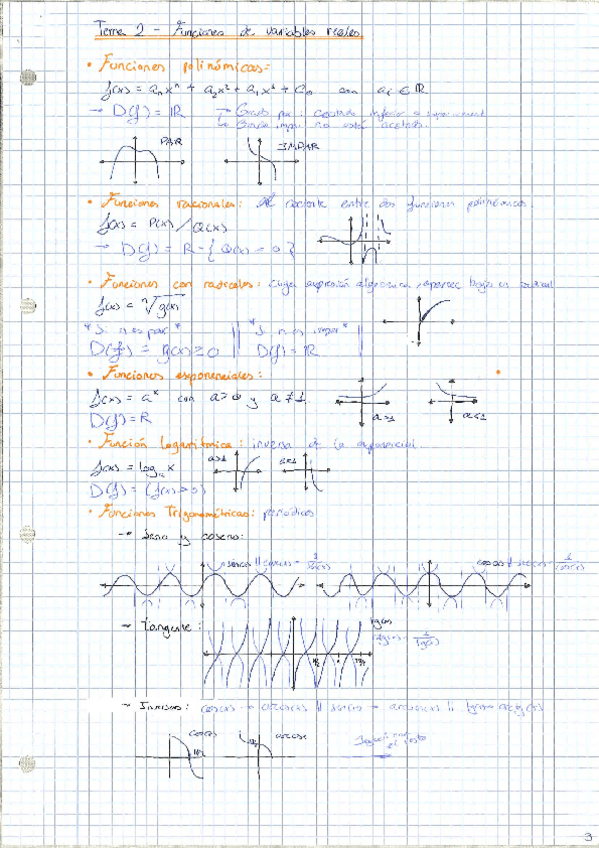 Tema 2 - Funciones de variables reales
• Funciones polinómicas:
f(x) = aₙxⁿ + a₂x² + a₁x¹ + a₀ con aᵢ ∈ ℝ
→ D(f) = ℝ → Grado par: acotada inferior o superiorment
↳ Grado impar no está acotada.
PAR IMPAR
• Funciones racionales: Al cociente entre dos funciones polinómicas.
f(x) = P(x) / Q(x)
→ D(f) = R - { Q(x) = 0 }
• Funciones con radicales: Cuya expresión algebraica aparece bajo un radical
f(x) = ⁿ√g(x)
* Si n es par * || * Si n es impar *
D(f) = g(x) ≥ 0 || D(f) = ℝ
• Funciones exponenciales:
f(x) = aˣ con a > 0 y a ≠ 1
a>1 a<1
D(f) = R
• Función Logarítmica: inversa de la exponencial.
f(x) = logₐ x a>1 a<1
D(f) = (f(x) > 0)
• Funciones Trigonométricas: periódicas
→ Seno y coseno:
→ tangente:
→ Inversas:
cos(x) arccosx
3